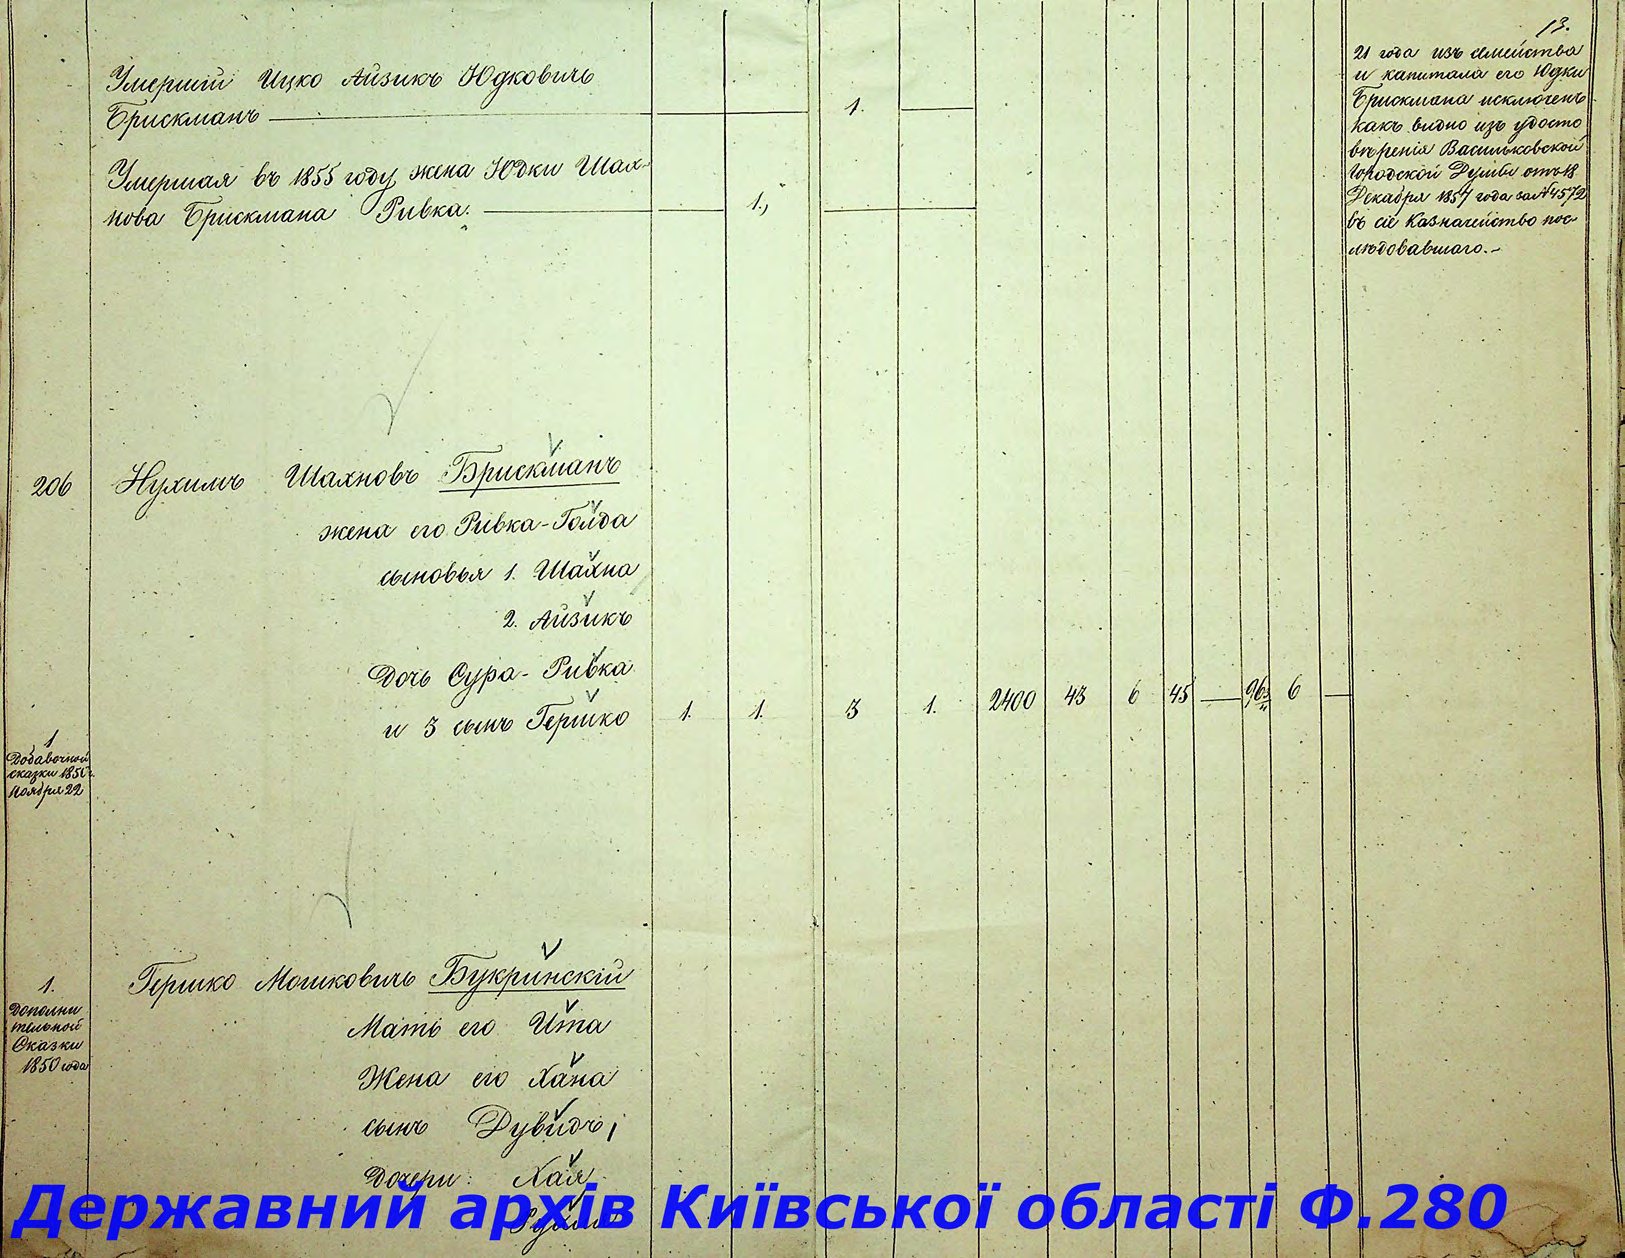 13.
Умерший Ицко Айзикъ Юдковичъ
Брискманъ 1.
Умершая въ 1855 году жена Юдки Шах-
нова Брискмана Ривка. 1.
21 года изъ семейства
и капитала его Юдки
Брискмана исключенъ
какъ видно изъ удосто
вѣренія Васильковской
Городской Думы отъ 18
Декабря 1857 года за № 4572
въ сіе Казначейство пос-
лѣдовавшаго.-
206 Нухимъ Шахновъ Брискманъ
жена его Ривка-Голда
сыновья 1. Шахна
2. Айзикъ
Дочь Сура-Ривка
и 3 сынъ Гершко 1. 1. 3 1. 2400 43 6 45 96 6
1
Добавочной
сказки 1850 г.
Ноября 22
1. Гершко Мошковичъ Букринскій
Дополни
тельной
Сказки
1850 года
Мать его Ита
Жена его Хана
сынъ Дувидъ,
Дочери: Хая
Державний архів Київської області Ф.280